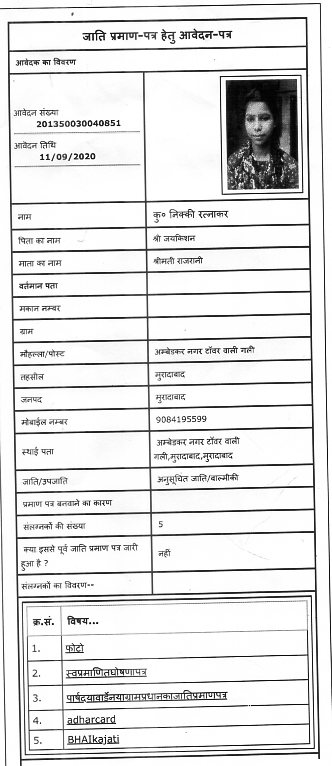 जाति प्रमाण-पत्र हेतु आवेदन-पत्र
आवेदक का विवरण
आवेदन संख्या
201350030040851
आवेदन तिथि
11/09/2020
नाम कु० निक्की रत्नाकर
पिता का नाम श्री जयकिशन
माता का नाम श्रीमती राजरानी
वर्तमान पता
मकान नम्बर
ग्राम
मौहल्ला/पोस्ट अम्बेडकर नगर टॉवर वाली गली
तहसील मुरादाबाद
जनपद मुरादाबाद
मोबाईल नम्बर 9084195599
स्थाई पता अम्बेडकर नगर टॉवर वाली
गली,मुरादाबाद,मुरादाबाद
जाति/उपजाति अनुसूचित जाति/बाल्मीकी
प्रमाण पत्र बनवाने का कारण
संलग्नकों की संख्या 5
क्या इससे पूर्व जाति प्रमाण पत्र जारी
हुआ है ? नहीं
संलग्नकों का विवरण--
क्र.सं. विषय...
1. फ़ोटो
2. स्वप्रमाणितघोषणापत्र
3. पार्षदयावार्डनयाग्रामप्रधानकाजातिप्रमाणपत्र
4. adharcard
5. BHAIkajati